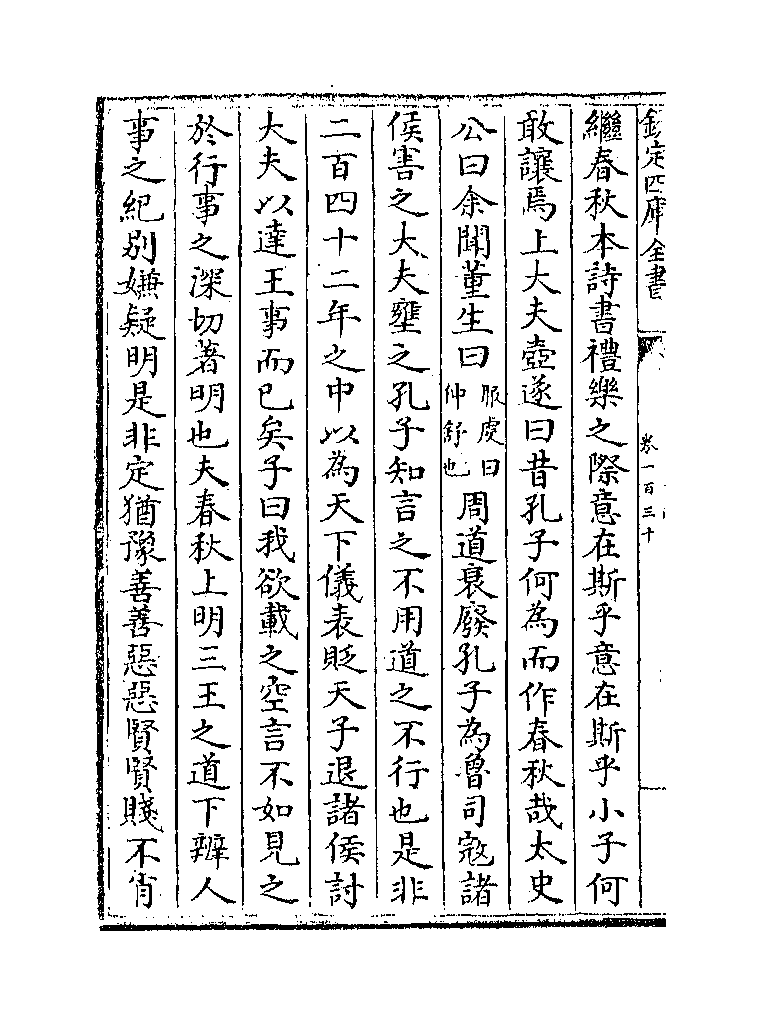 欽定四庫全書
卷一百三十
繼春秋本詩書禮樂之際意在斯乎意在斯乎小子何
敢讓焉上大夫壺遂曰昔孔子何為而作春秋哉太史
公曰余聞董生曰服虔曰仲舒也周道衰廢孔子為魯司寇諸
侯害之大夫壅之孔子知言之不用道之不行也是非
二百四十二年之中以為天下儀表貶天子退諸侯討
大夫以達王事而已矣子曰我欲載之空言不如見之
於行事之深切著明也夫春秋上明三王之道下辨人
事之紀別嫌疑明是非定猶豫善善惡惡賢賢賤不肖